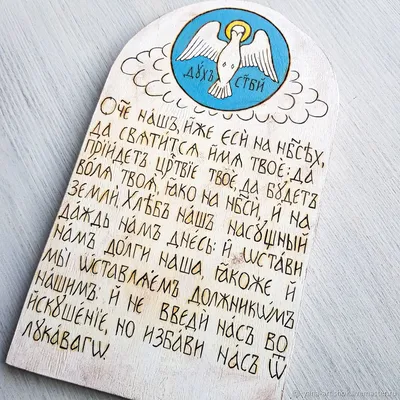 дꙋ́хъ ст҃ы́й
Ѻ҆́ч҃е нашъ, и҆́же є҆сѝ на нб҃сѣ́хъ,
да свѧти́тсѧ и҆́мѧ твоѐ: да
прїи́детъ црⷭ҇твїе твоѐ, да бꙋ́детъ
во́лѧ твоѧ̀, ꙗ҆́кѡ на нб҃сѝ, и҆ на
землѝ, хлѣ́бъ на́шъ насꙋ́щный
да́ждь на́мъ дне́сь: и҆ ѡ҆ста́ви
на́мъ до́лги на́ша, ꙗ҆́коже, и҆
мы̀ ѡ҆ставлѧ́емъ должникѡ́мъ
на́шимъ: и҆ не введѝ на́съ во
и҆скꙋше́нїе, но и҆зба́ви на́съ ѿ
лꙋка́вагѡ.